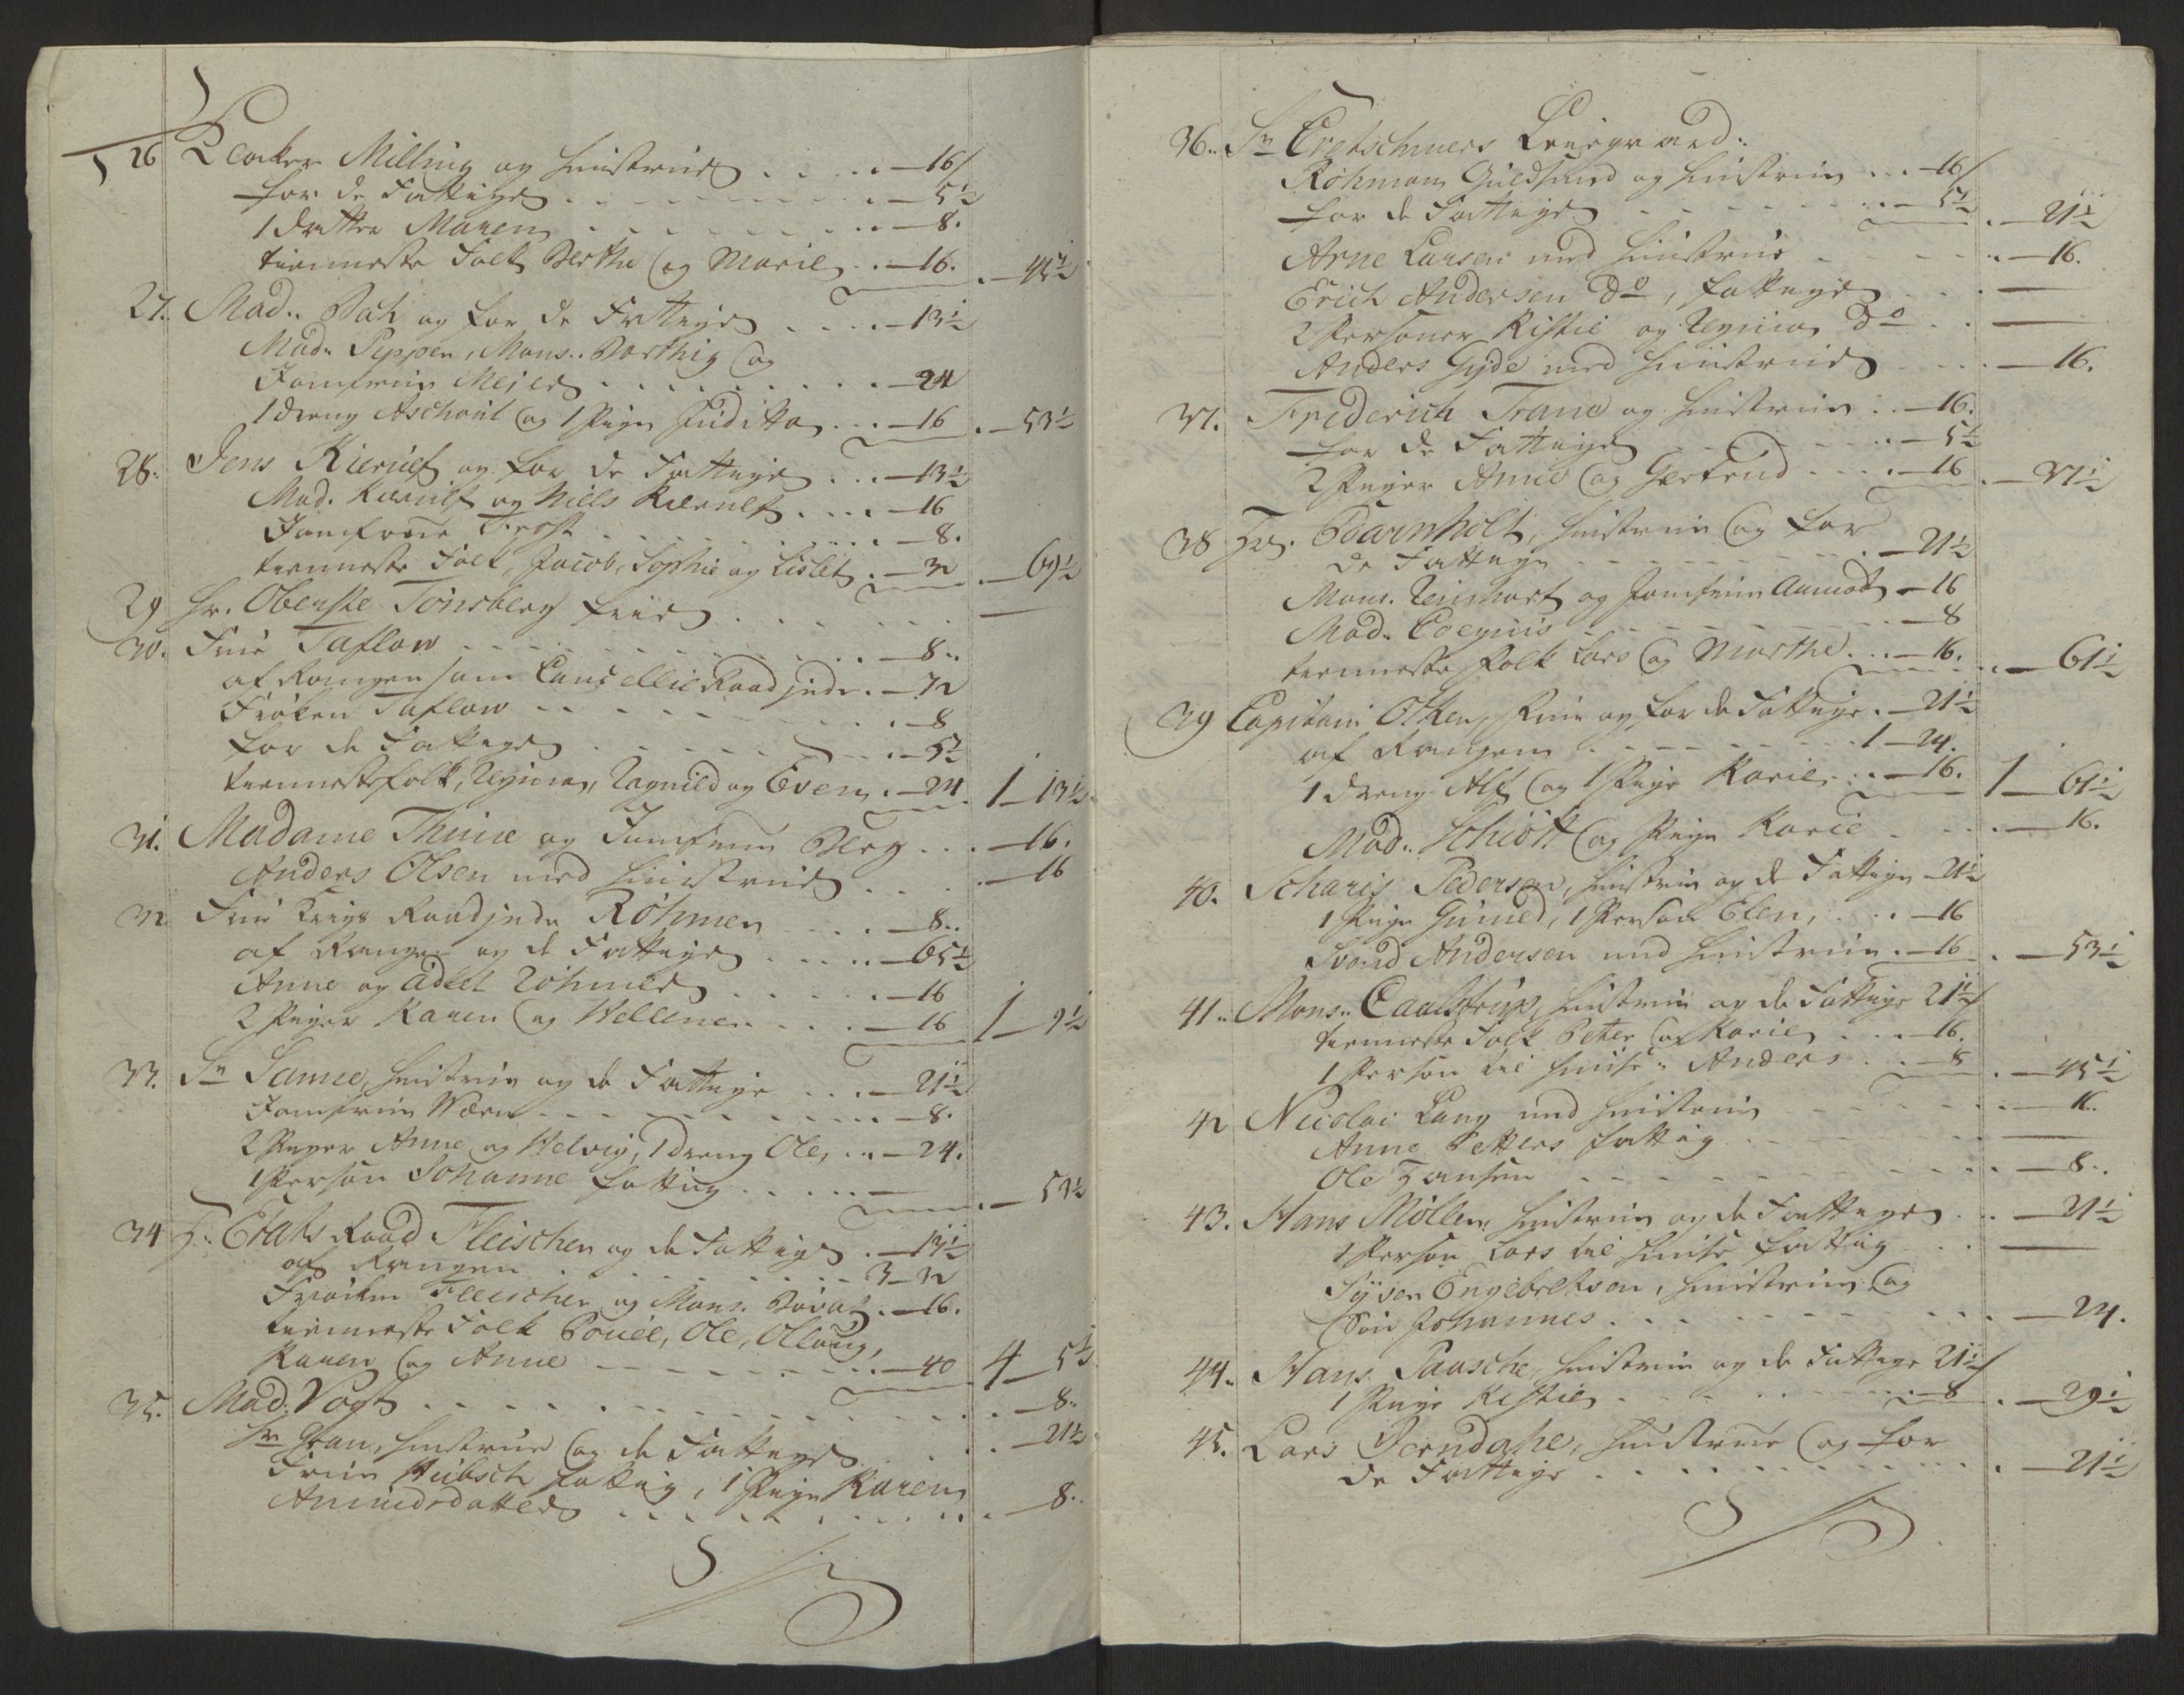 26 Peder Milling og Hustrue . . . . -16/
for de Fattige . . . . . . . . -5½
1 datter Maren . . . . . . . . -8.
tienneste Folk Berthe og Marie . . -16. . -45½
27. Mad.. Bah og for de Fattige . . . . -13½
Mad.. Peppen, Mons.. Dorthig og
Jomfrue Meier . . . . . . . . . -24
1 dreng Aschout og 1 Pige Juditta . . . -16 . -53½
28. Jens Kierulf og for de Fattige . . . -13½
Mad. Kierulf og Niels Kierulf . . . . -16
Jomfrue Frost . . . . . . . . . -8.
tienneste Folk, Jacob, Sophie og Lisbet . -32 . -69½
29 Hr. Oberste Tönsberg frie . . . . . . —
30. Frue Taflow . . . . . . . . . . . -8..
af Rangen som Cancellie Raadinde . -72
Frøken Taflow . . . . . . . . . -8
for de Fattige . . . . . . . . . -5½
tiennestefolk, Regina, Ragnild og Even . -24 1-13½
31. Madame Thrue og Jomfrue Berg . . . -16.
Anders Olsen med Hustrue . . . . . -16
32 Frue Krigs Raadinde Röhmen . . . . -8..
af Rangen og de Fattige . . . . . -65½
Anne og Adlet Röhmer . . . . . . -16
2 Piger Karen og Wellene . . . . -16 1-9½
33. Sr Samue, Hustrue og de Fattige . . . -21½
Jomfrue Wærn . . . . . . . . . . -8.
2 Piger Anne og Helvig, 1 dreng Ole, . . -24.
1 Person Johanne fattig . . . . . — . -53½
34 H.. Etats Raad Fleischer og de Fattige . -13½
af Rangen . . . . . . . . . . 3-32
Frøken Fleischer og Mons. Dovat . -16.
tienneste Folk Povel, Ole, Ollaug,
Karen og Anne . . . . . . . . . -40 4-5½
35. Mad. Vogt . . . . . . . . . . . . . -8..
Sr Gran, Hustrue og de Fattige . . -21½
Frue Hübsch fattig, 1 Pige Karen
Amundsdatter . . . . . . . . . . . -8..
36.. Sr Cretschmers Leiegaard:
Röhmans Guldsmed og Hustrue . . . -16/
for de Fattige . . . . . . . . . -5½ . -21½
Arne Larsen med Hustrue . . . . . . -16.
Erich Andersen do, fattige . . . —
2 Personer Kistie og Regina do . . —
Anders Gyde med Hustrue . . . . . -16.
37. Frederich Trane og Hustrue . . -16.
for de Fattige . . . . . . . . . -5½
2 Piger Anne og Gertrud . . . . -16 . -37½
38 Hr. Baarnholt, Hustrue og for
de Fattige . . . . . . . . -21½
Mons. Reinhart og Jomfrue Aamodt -16
Mad.. Coegnis . . . . . . . . . -8
tienneste Folk Lars og Marthe . . . -16. . -61½
39 Capitain Olsen, Frue og for de Fattige . -21½
af Rangen . . . . . . . . . . 1-24.
1 dreng Alf og 1 Pige Karie . . -16. 1-61½
Mad.. Schiött og Pige Karie . . . . -16.
40. Scharis Pedersen, Hustrue og de Fattige -21½
1 Pige Guned, 1 Person Elen, . . . -16
Svend Andersen med Hustrue . -16 . -53½
41.. Mons.. Caalstrup, Hustrue og de Fattige 21½/
tienneste Folk Peter og Karie . . . -16.
1 Person til Huuse: Anders . . -8 . -45½
42 Nicolai Lang med Hustrue . . . . . . -16.
Anne Petters fattig . . . . . . —
Ole Hansen . . . . . . . . . . . . -8..
43. Hans Möller, Hustrue og de Fattige . . -21½
1 Person Lars til Huuse fattig . . . —
Syver Engebretsen, Hustrue og
Søn Johannes . . . . . . . . . . . -24.
44.. Hans Paasche, Hustrue og de Fattige 21½/
1 Pige Kistie . . . . . . . . . -8 . -29½
45. Lars Jerndahl, Hustrue og for
de Fattige . . . . . . . . . . . . -21½